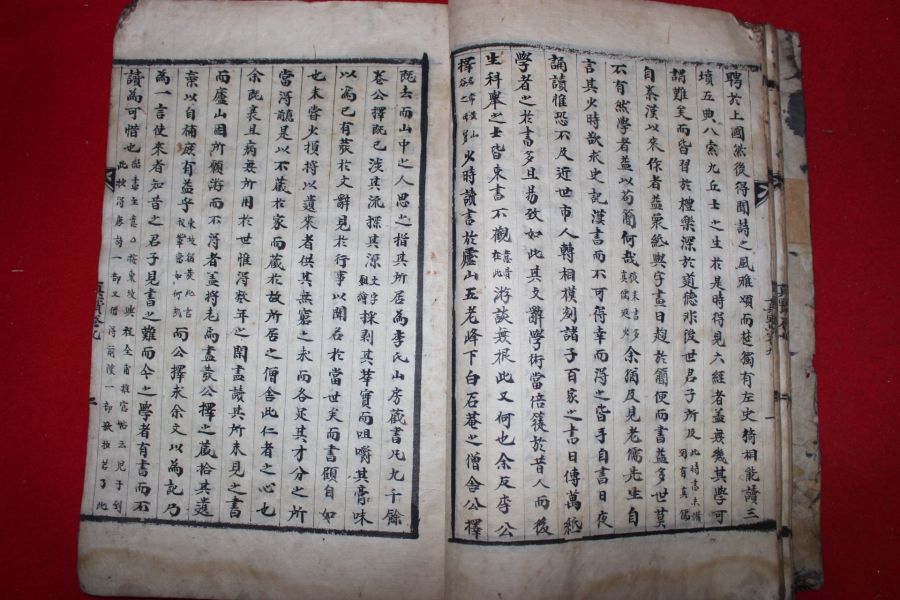 聘於上國然後得聞詩之風雅頌而楚獨有左史猗相能讀三
墳五典八索九丘士之生於是時得見六經者蓋無幾其學可
謂難矣而皆習於禮樂深於道德非後世君子所及此時書未備固有真儒
自秦漢以來作者益衆紙與字畫日趨於簡便而書益多世莫
不有然學者益以苟簡何哉書多真儒少余猶及見老儒先生自
言其少時欲求史記漢書而不可得幸而得之皆手自書日夜
誦讀惟恐不及近世市人轉相摸刻諸子百家之書日傳萬紙
學者之於書多且易致如此其文辭學術當倍蓰於昔人而後
生科擧之士皆束書不觀游談無根此又何也余友李公
擇名常黃山谷之母舅少時讀書於廬山五老峰下白石菴之僧舍公擇
旣去而山中之人思之指其所居爲李氏山房藏書凡九千餘
卷公擇旣已涉其流探其源文字採剝其華實而咀嚼其膏味
以爲己有發於文辭見於行事以聞名於當世矣而書顧自如
也未嘗少損將以遺來者供其無窮之求而各足其才分之所
當得是以不藏於家而藏於故所居之僧舍此仁者之心也
余旣衰且病無所用於世惟得數年之閒盡讀其所未見之書
而廬山固所願游而不得者蓋將老焉盡發公擇之藏拾其遺
棄以自補庶有益乎東坡猶如此吾我輩當如何而公擇求余文以爲記乃
爲一言使來者知昔之君子見書之難而今之學者有書而不
讀爲可惜也